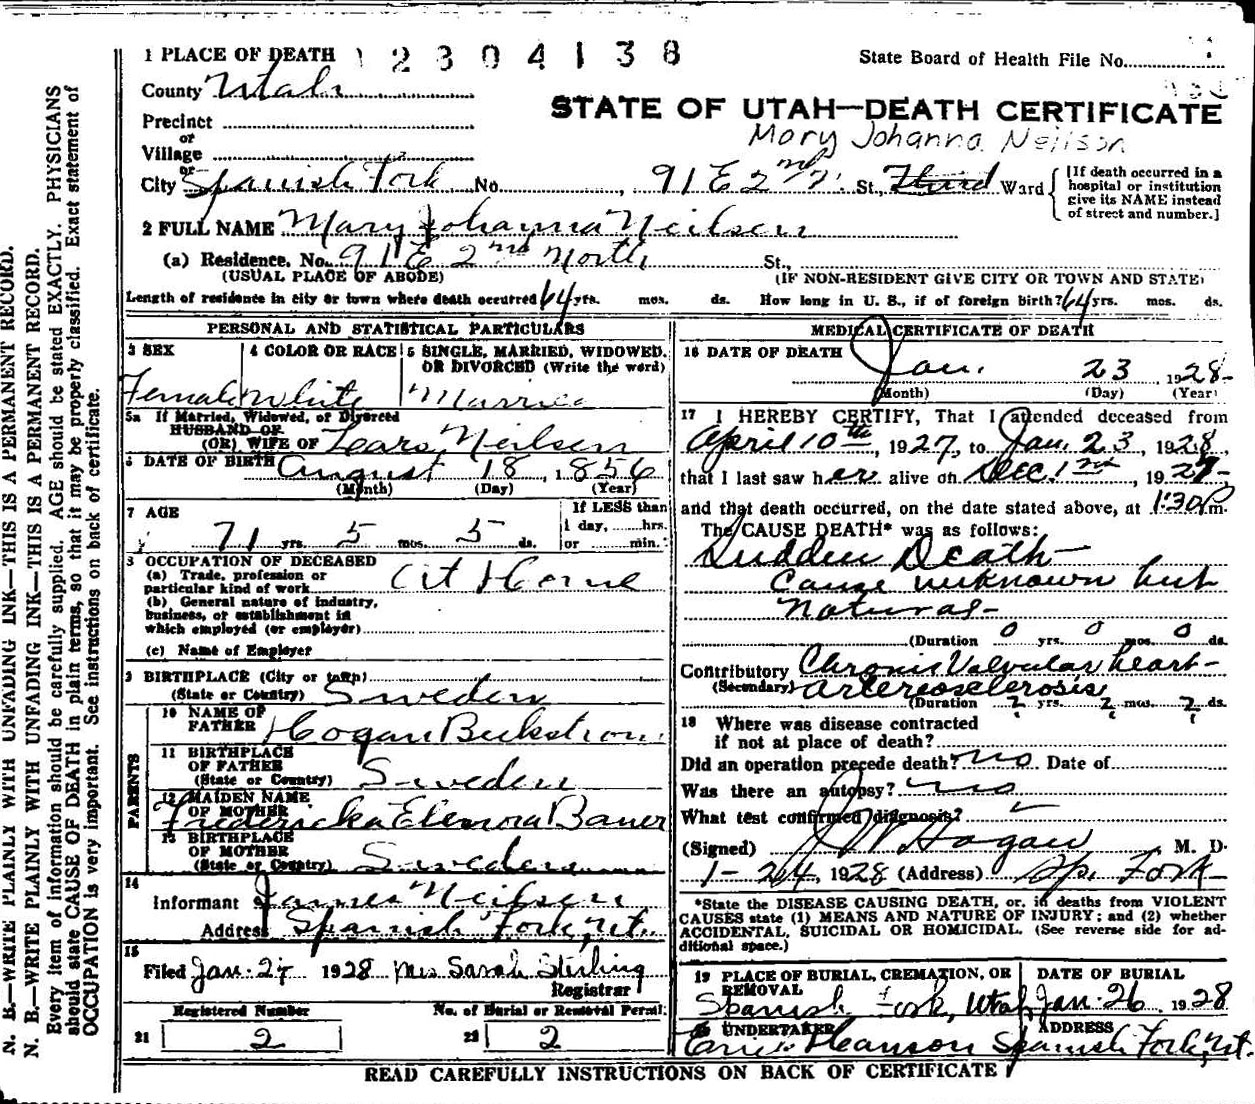 1 PLACE OF DEATH 12304138 State Board of Health File No.
County Utah
STATE OF UTAH—DEATH CERTIFICATE
Precinct
Mary Johanna Neilson
or
Village
or
City Spanish Fork No. 91 E 2nd N. St, Third Ward
[If death occurred in a hospital or institution give its NAME instead of street and number.]
2 FULL NAME Mary Johanna Neilsen
(a) Residence. No. 91 E 2nd North St.,
(USUAL PLACE OF ABODE) (IF NON-RESIDENT GIVE CITY OR TOWN AND STATE)
Length of residence in city or town where death occurred 64 yrs. mos. ds. How long in U. S., if of foreign birth? 64 yrs. mos. ds.
PERSONAL AND STATISTICAL PARTICULARS
3 SEX
Female
4 COLOR OR RACE
White
5 SINGLE, MARRIED, WIDOWED, OR DIVORCED (Write the word)
Married
5a If Married, Widowed, or Divorced
HUSBAND OF
(OR) WIFE OF Lars Neilsen
6 DATE OF BIRTH August 18, 1856
(Month) (Day) (Year)
7 AGE
71 yrs. 5 mos. 5 ds.
If LESS than
1 day, ......hrs.
or ......min.
8 OCCUPATION OF DECEASED
(a) Trade, profession or
particular kind of work At Home
(b) General nature of industry,
business, or establishment in
which employed (or employer)
(c) Name of Employer
9 BIRTHPLACE (City or town)
(State or Country) Sweden
PARENTS
10 NAME OF
FATHER Hogan Beckstrom
11 BIRTHPLACE
OF FATHER
(State or Country) Sweden
12 MAIDEN NAME
OF MOTHER
Fredericka Elenora Bauer
13 BIRTHPLACE
OF MOTHER
(State or Country) Sweden
14
Informant James Neilsen
Address Spanish Fork, Ut.
15
Filed Jan. 24 1928 Mrs Sarah Sterling
Registrar
Registered Number No. of Burial or Removal Permit
21 2 22 2
MEDICAL CERTIFICATE OF DEATH
16 DATE OF DEATH
Jan. 23, 1928
(Month) (Day) (Year)
17 I HEREBY CERTIFY, That I attended deceased from
April 10th, 1927, to Jan. 23, 1928
that I last saw her alive on Dec. 1st, 1927
and that death occurred, on the date stated above, at 1:30 P m.
The CAUSE DEATH* was as follows:
Sudden Death
Cause unknown but
Natural
(Duration 0 yrs. 0 mos. 0 ds.
Contributory Chronic Valvular heart-
(Secondary) Arteriosclerosis
(Duration ? yrs. ? mos. ? ds.
18 Where was disease contracted
if not at place of death?
Did an operation precede death? no Date of
Was there an autopsy? no
What test confirmed diagnosis?
(Signed) J W Hagan M. D.
1-24, 1928 (Address) Sp. Fork
*State the DISEASE CAUSING DEATH, or, in deaths from VIOLENT
CAUSES state (1) MEANS AND NATURE OF INJURY; and (2) whether
ACCIDENTAL, SUICIDAL OR HOMICIDAL. (See reverse side for ad-
ditional space.)
19 PLACE OF BURIAL, CREMATION, OR REMOVAL
Spanish Fork, Utah
DATE OF BURIAL
Jan. 26 1928
20 UNDERTAKER
Hanson
ADDRESS
Spanish Fork, Ut.
READ CAREFULLY INSTRUCTIONS ON BACK OF CERTIFICATE
N. B.—WRITE PLAINLY WITH UNFADING INK—THIS IS A PERMANENT RECORD.
N. B.—WRITE PLAINLY WITH UNFADING INK—THIS IS A PERMANENT RECORD.
Every item of information should be carefully supplied. AGE should be stated EXACTLY. PHYSICIANS
should state CAUSE OF DEATH in plain terms, so that it may be properly classified. Exact statement of
OCCUPATION is very important. See instructions on back of certificate.